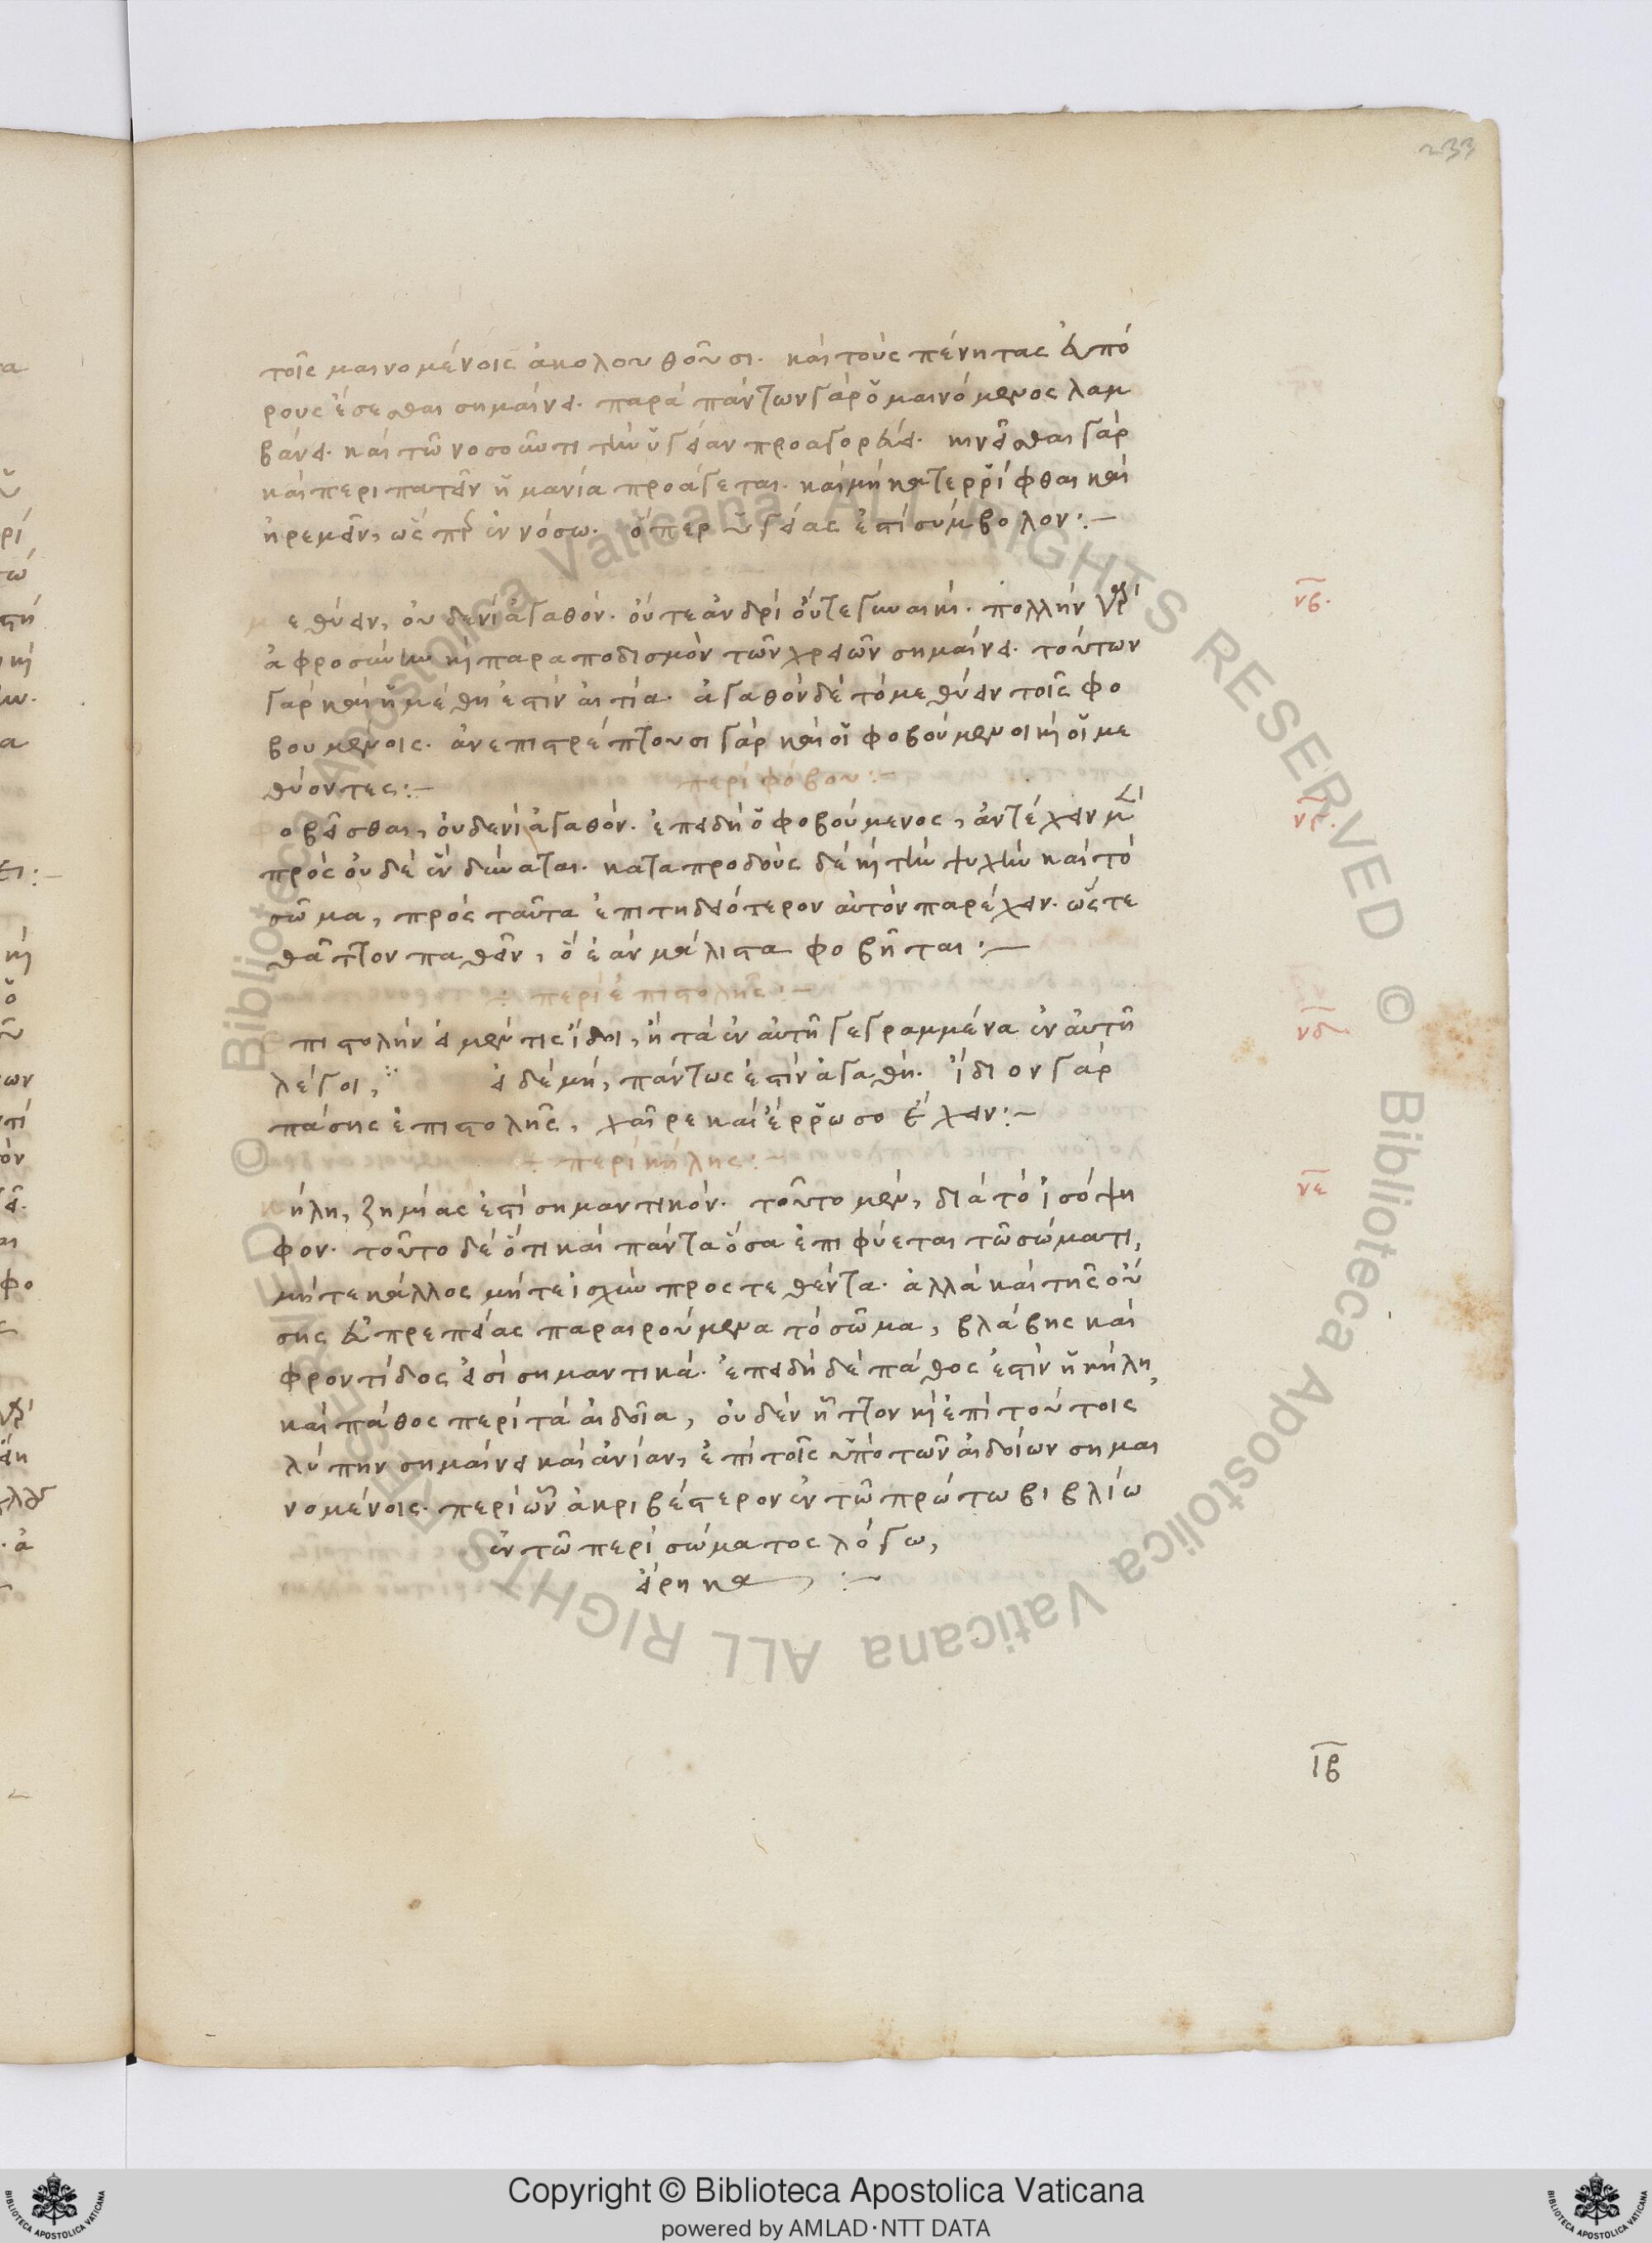 233
τοῖς μαινομένοις ἀκολουθοῦσι. καὶ τοὺς πένητας εὐπό
ρους ἔσεσθαι σημαίνει. παρὰ πάντων γὰρ ὁ μαινόμενος λαμ
βάνει. καὶ τῶ νοσοῦντι τὴν ὑγείαν προαγορεύει. κινεῖσθαι γὰρ
καὶ περιπατεῖν ἡ μανία προάγεται. καὶ μὴ κατερρίφθαι καὶ
ἠρεμεῖν, ὥσπερ ἐν νόσω. ὅπερ ὑγείας ἐστὶ σύμβολον:–
νβ.
μεθύειν, οὐδενὶ ἀγαθόν. οὔτε ἀνδρὶ οὔτε γυναικί. πολλὴν γὰρ
ἀφροσύνην κ̀ παραποδισμὸν τῶν χρειῶν σημαίνει. τούτων
γὰρ καὶ ἡ μέθη ἐστὶν αἰτία. ἀγαθὸν δὲ τὸ μεθύειν τοῖς φο
βουμένοις. ἀνεπιστρέπτουσι γὰρ καὶ οἱ φοβούμενοι κ̀ οἱ με
θύοντες:– περὶ φόβου:–
νγ.
φοβεῖσθαι, οὐδενὶ ἀγαθόν. ἐπειδὴ ὁ φοβούμενος, ἀντέχειν μὲν
πρὸς οὐδὲ ἓν δύναται. καταπροδοὺς δὲ κ̀ τὴν ψυχὴν καὶ τὸ
σῶμα, πρὸς ταῦτα ἐπιτηδειότερον αὐτὸν παρέχειν. ὥστε
θᾶττον παθεῖν, ὃ ἐὰν μάλιστα φοβῆται:–
÷ περὶ ἐπιστολῆς:–
νδ
ἐπιστολὴν εἰ μέν τις ἴδοι, ἢ τὰ ἐν αὐτῆ γεγραμμένα ἐν αὐτῆ
λέγοι, εἰ δὲ μή, πάντως ἐστὶν ἀγαθή. ἴδιον γὰρ
πάσης ἐπιστολῆς, χαῖρε καὶ ἔρρωσο ἔχειν:–
÷ περὶ κήλης:–
νε
κήλη, ζημίας ἐστὶ σημαντικόν. τοῦτο μέν, διὰ τὸ ἰσόψη
φον. τοῦτο δὲ ὅτι καὶ πάντα ὅσα ἐπιφύεται τῶ σώματι,
μήτε κάλλος μήτε ἰσχὺν προστεθέντα. ἀλλὰ καὶ τῆς οὔ
σης εὐπρεπείας παραιρούμενα τὸ σῶμα, βλάβης καὶ
φροντίδος εἰσὶ σημαντικά. ἐπειδὴ δὲ πάθος ἐστὶν ἡ κήλη,
καὶ πάθος περὶ τὰ αἰδοῖα, οὐδὲν ἧττον κ̀ ἐπὶ τούτοις
λύπην σημαίνει καὶ ἀνίαν, ἐπὶ τοῖς ὑπὸ τῶν αἰδοίων σημαι
νομένοις. περὶ ὧν ἀκριβέστερον ἐν τῶ πρώτω βιβλίω
ἐν τῶ περὶ σώματος λόγω,
εἴρηκα :–
ιβ
© Biblioteca Apostolica Vaticana ALL RIGHTS RESERVED © Biblioteca Apostolica Vaticana ALL RIGHTS RESERVED
Copyright © Biblioteca Apostolica Vaticana
powered by AMLAD·NTT DATA
BIBLIOTECA APOSTOLICA VATICANA
BIBLIOTECA APOSTOLICA VATICANA